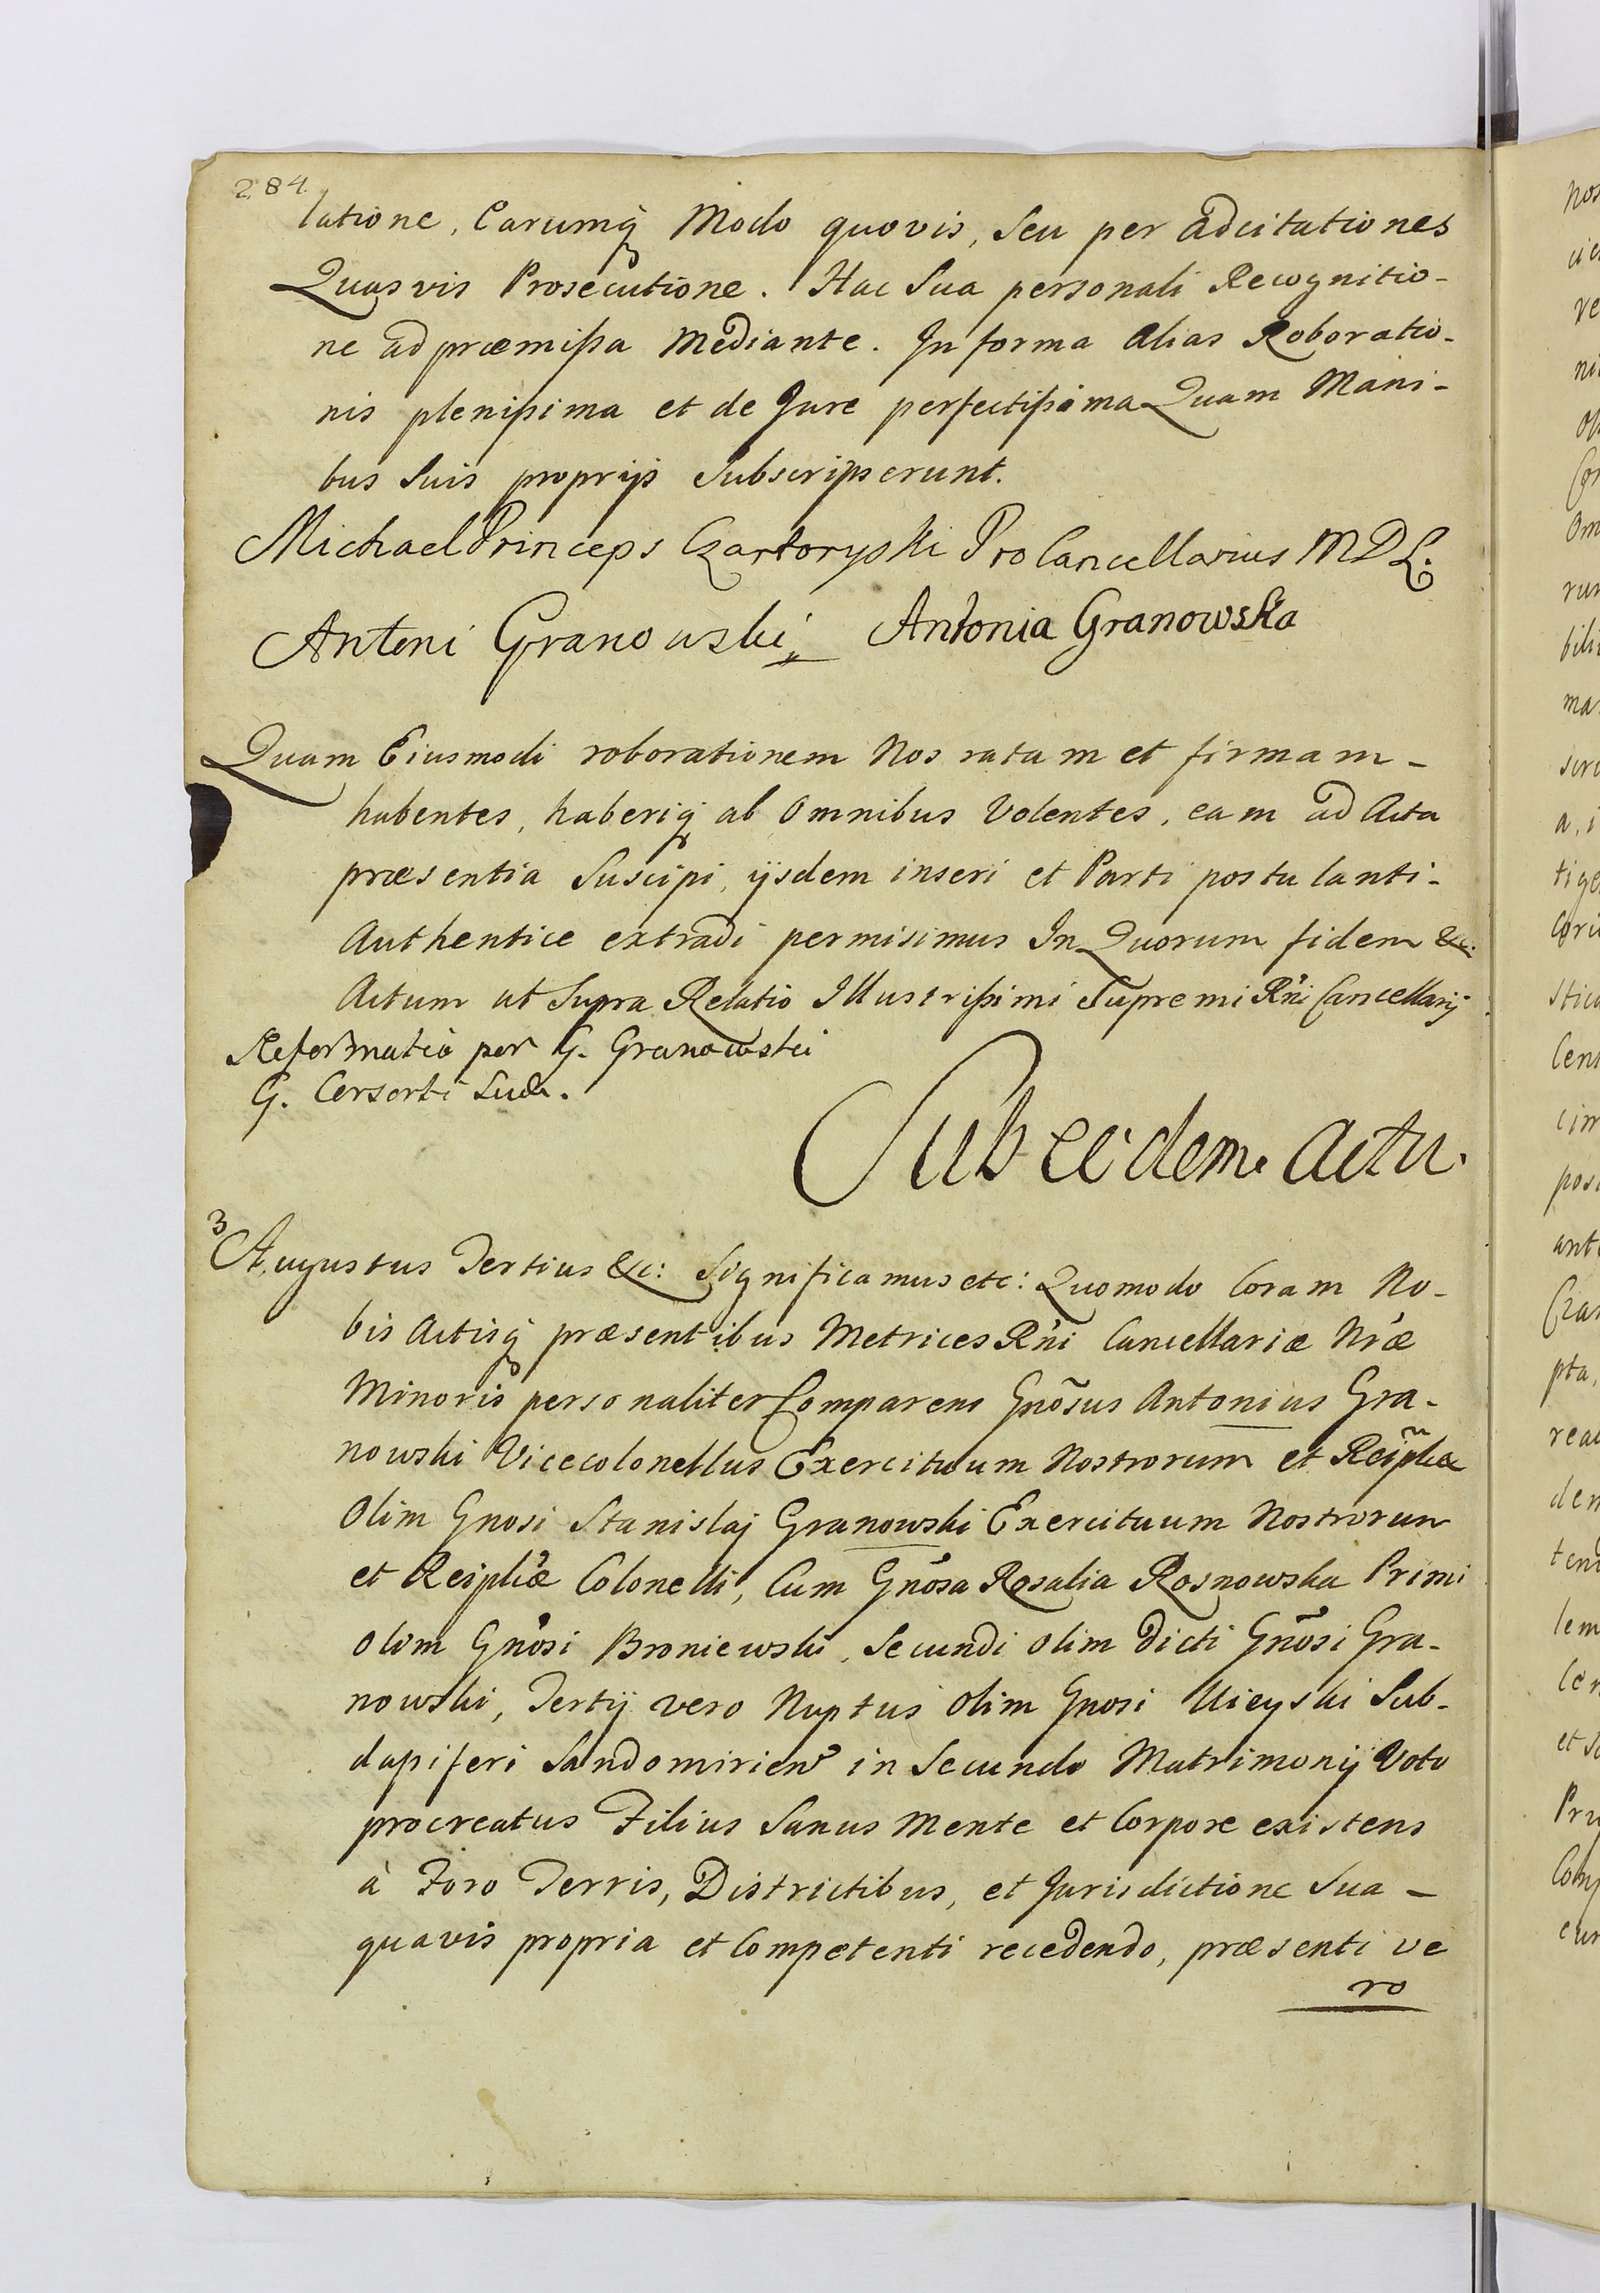 284.
latione, Earumq̃ Modo quovis, seu per adcitationes
Quasvis Prosecutione. Hac Sua personali Recognitio-
ne ad præmißa Mediante. In forma alias Roboratio-
nis plenißima et de Jure perfectißima Quam Mani-
bus Suis proprijs Subscripserunt.
Michael Princeps Czartoryski ProCancellarius MDL.
Antoni Granowski, Antonia Granowska
Quam Eiusmodi roborationem Nos ratam et firmam-
habentes, haberiq̃ ab Omnibus Volentes, eam ad Acta
præsentia Suscipi, ijsdem inseri et Parti postulanti-
Authentice extradi permisimus In Quorum fidem &c.
Actum ut Supra Relatio Illustrißimi Supremi Rni Cancellarij
Reformatio per G. Granowski
G. Consorti Suæ.
Sub eodem Actu.
3
Augustus Tertius &c: Significamus etc: Quomodo Coram No-
bis Actisq̃ præsentibus Metrices Rñi Cancellariæ Nræ
Minoris personaliter Comparens Gñosus Antonius Gra-
nowski Vicecolonellus Exercituum Nostrorum et Reiplicæ
Olim Gnosi Stanislaj Granowski Exercituum Nostrorum
et Reiplicæ Colonelli, Cum Gñosa Rosalia Rosnowska Primi
olim Gñosi Broniewski, Secundi olim Dicti Gñosi Gra-
nowski, Tertij vero Nuptus olim Gnosi Uieyski Sub-
dapiferi Sandomirien in Secundo Matrimonij Voto
procreatus Filius Sanus Mente et Corpore existens
à Foro Terris, Districtibus, et Jurisdictione Sua-
quavis propria et Competenti recedendo, præsenti ve
ro